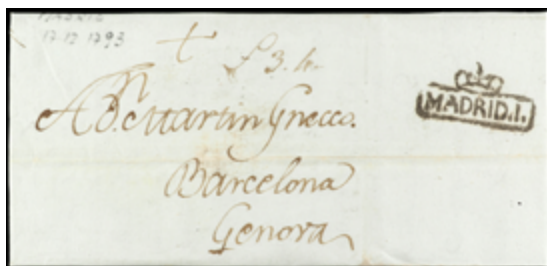 MADRID
17-12-1793
£ 3. 4.
MADRID.I.
A Dn. Martin Gnecco.
Barcelona
Genova